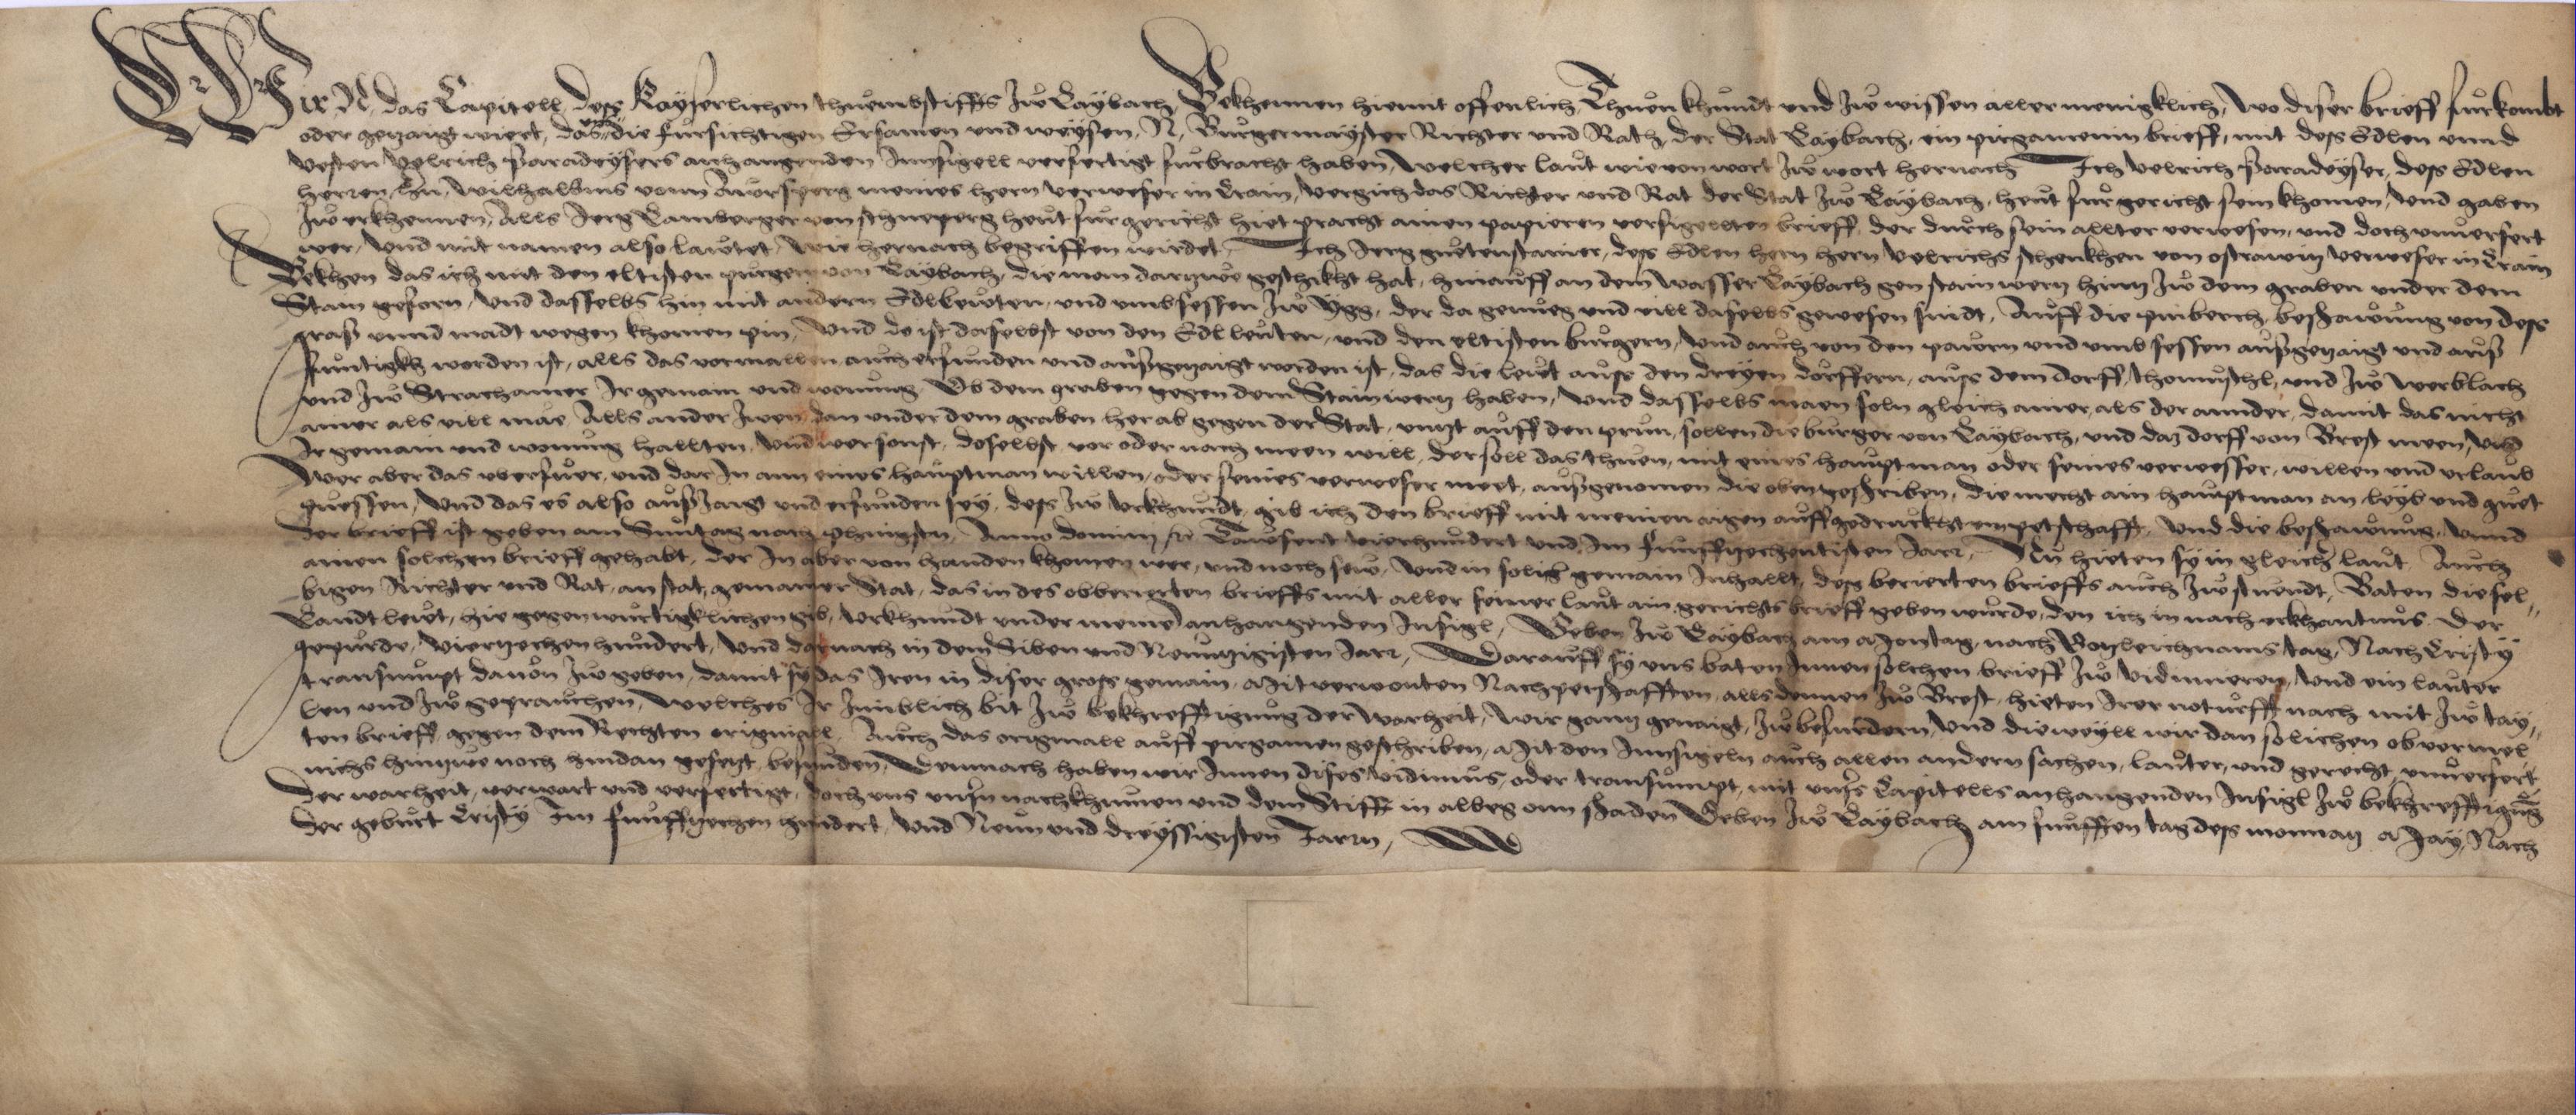 Wir N das Capitell dess Kayserlichen thuembstiffts zw Laybach, Bekhennen hiemit offenlich, Thuen khundt und zw wissen aller menigklich, wo diser brieff furkombt
oder gezaigt wiert, das uns die fursichtigen Ersamen und weysen, N, Burgermayster Richter und Rath, der Stat Laybach, ein pirgamenin brieff, mit dess Edlen unnd
vesten Velrich Paradeysers anhangenden Innsigell verfertigt furbracht haben, welcher laut wie von wort zw wort hernach Ich Velrich Paradeyser, dess Edlen
herren, hern Wilhalbms vonn Awrsperg meines hern verweser in Crain, vergich das Richter und Rat der Stat zw Laybach, heut fur gericht sein khomen, und gaben
zw erkhennen, Alls Jerg Lamberger von schneperg heut fur gericht hiet pracht ainen papieren versigellten brieff, der durch sein allter verwesen, und doch unverfert
wer, und mit namen also lautet, wie hernach begriffen wirdet, Ich Jerg guetenstainer, dess Edlen hern hern Velrichs schenkhen von ostrawitz verweser in Crain
Bekhen das ich mit den eltisten purgern von Laybach, die man darzwe geschikht hat, hinauff an dem wasser Laybach gen stain wertz hintz zw dem graben under dem
Stain gefarn, und dasselbs hin mit andern Edlleuten, und umbsessen zw Ygg, der da genueg und vill daselbs gewesen sindt, Auff die piberch, beschawung von dess
grass unnd madt wegen khomen pin, Und do ist daselbst von den Edlleuten, und den eltisten burgern, und auch von den pawrn und umbsessen aussgezaigt und auss
fundigkh worden ist, alls das vormallen auch erfunden und aussgezaigt worden ist, das die leut auss den dreyen dorffern, auss dem dorff, thomischl, und zw werblach
und zw Strachamer Ir gemain und wonung Ob dem graben gegen dem Stain wertz haben, Und dasselbs maen soln gleich ainer, als der annder, damit das nicht
ainer als vill mae Alls ander zwen, dan under dem graben herab gegen der Stat, untzt auff den prun, sollen die burger von Laybach, und daz dorff von Brest meen, und
Ir gemain und wonung hallten, und wer sonst, doselbst, vor oder nach meen will, der soll das thuen, mit eines hauptman oder seines verwesser, willen und urlaub
Wer aber das uberfuer, und dar In ann eines hauptman willen, oder seines verweser meet, aussgenomen die obengeschriben, die mecht ain hauptman an leyb und guet
puessen, Und das es also ausszaigt und erfunden sey, dess zw urkhundt, gib ich den brieff mit meinen aigen auffgedruckhtem petschafft, und die beschawung, unnd
der brieff ist geben am Suntag nach phingsten, Anno domini etc Tawsent vierhundert und Im funffzechentisten Jarr, Nu hieten sy in gleich laut Auch
ainen solchen brieff gehabt, der In aber von handen khomen wer, und noch sew, Und in solig gemain Inhallt, dess berierten brieffs auch zw stuendt, Baten diesel-
bigen Richter und Rat, anstat, gemainer Stat, das in des obberierten brieffs mit aller seiner laut ain gerichtsbrieff geben wurde, den ich in nach erkhantnus der
Landtleut, hie gegenwurtigklichen gib, Urkhundt under meinem anhangenden Insigl, Geben zw Laybach am Montag, nach Gotzleichnams tag, Nach Cristy
gepurde, viertzechenhundert, und darnach in dem Siben und Neuntzigisten Jarr, Darauff sy uns baten Innen solchen brieff zw vidimieren, und ein lauter
transumpt davon zw geben, damit sy das Iren in diser gross gemain, Mitverwonten Nachperschafften, alls dennen zw Brest, hieten Irer noturfft nach mit zw tay-
len und zw geprauchen, welches Ir zimblich bit zw bekhrefftigung der warheit, wir gantz genaigt, zw befurdern, Und dieweyll wir dan solichen obvermel
ten brieff gegen dem Rechten originall, Auch das originall auff pirgamen geschriben, Mit den Innsigeln auch allen andern sachen, lauter, und gerecht, unverfert
nichs hinzwe noch hindan gesetzt, befunden, Demnach haben wir Innen dises Vidimus, oder transumpt, mit unsers Capitells anhangenden Insigl zw bekhrefftigung
der warheit, verwart und verfertigt, doch uns unsern nachkhumen und dem Stifft in albeg onn schaden Geben zw Laybach am funfften tag dess monnatz May, Nach
der geburt Cristy Im funffzechen hundert, und Neun und dreyssigisten Jarrn,